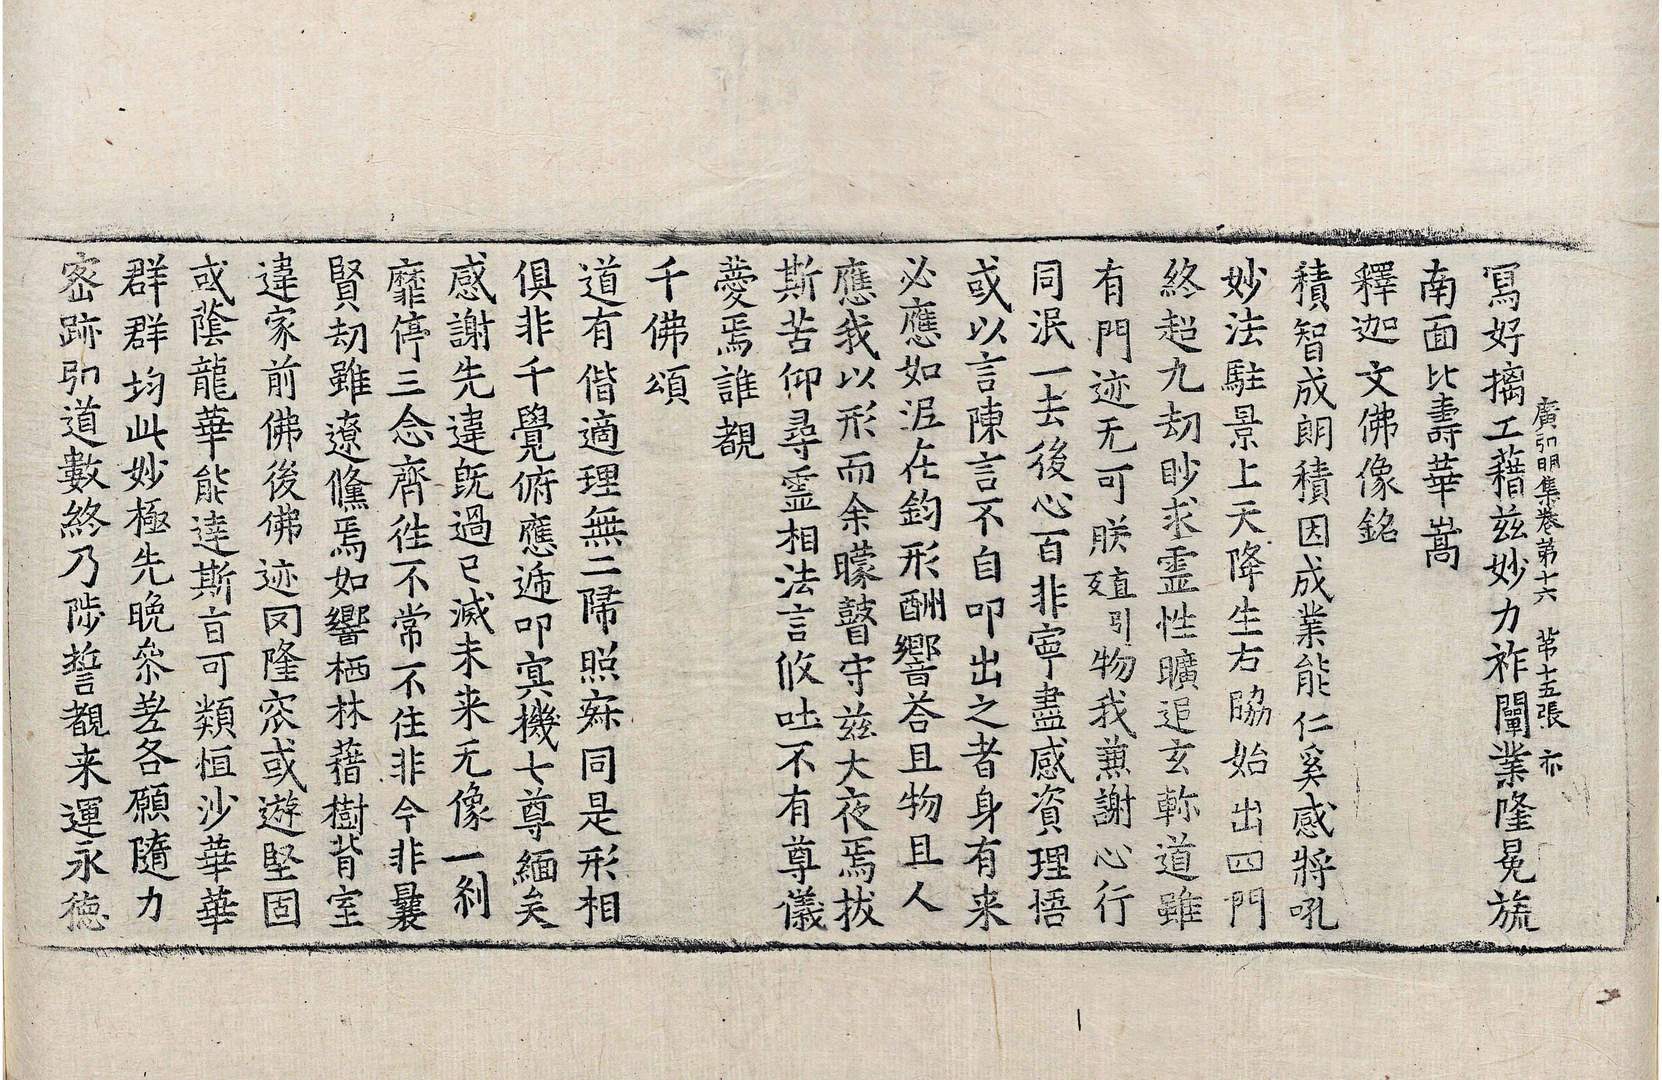 廣弘明集卷第十六 第十五張 亦
寫好摛工藉茲妙力祚闡業隆冕旒
南面比壽華嵩
釋迦文佛像銘
積智成朗積因成業能仁奚感將吼
妙法駐景上天降生右脇始出四門
終超九劫眇求靈性曠追玄軫道雖
有門迹无可朕𡨋引物我兼謝心行
同泯一去後心百非寧盡感資理悟
或以言陳言不自叩出之者身有来
必應如泥在鈞形酬響荅且物且人
應我以形而余矇瞽守茲大夜焉拔
斯苦仰尋靈相法言攸吐不有尊儀
蔓焉誰覩
千佛頌
道有偕適理無二歸照寂同是形相
俱非千覺俯應遞叩㝠機七尊緬矣
感謝先違旣過已滅未来无像一刹
靡停三念齊往不常不住非今非曩
賢劫雖遼儵焉如響栖林藉樹背室
違家前佛後佛迹罔隆窊或遊堅固
或蔭龍華能達斯旨可類恒沙華華
群群均此妙極先晚叅差各願隨力
密跡弘道數終乃陟誓覩来運永德